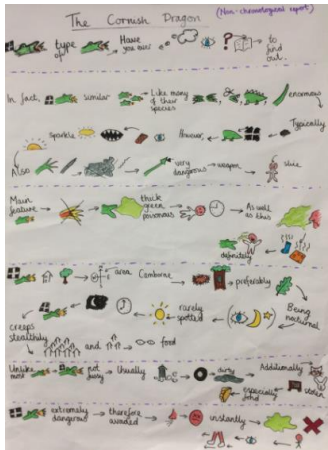 The Cornish Dragon
(Non-chronological report)
type of Have you ever ? to find out.
In fact, similar Like many of their species enormous
sparkle However, Typically
Also very dangerous weapon slice
Main feature thick green poisonous As well as this
definitely
area Camborne preferably
rarely spotted Being nocturnal
creeps stealthily and food
Unlike most not fussy Usually dirty Additionally
especially fond stolen
extremely dangerous therefore avoided instantly